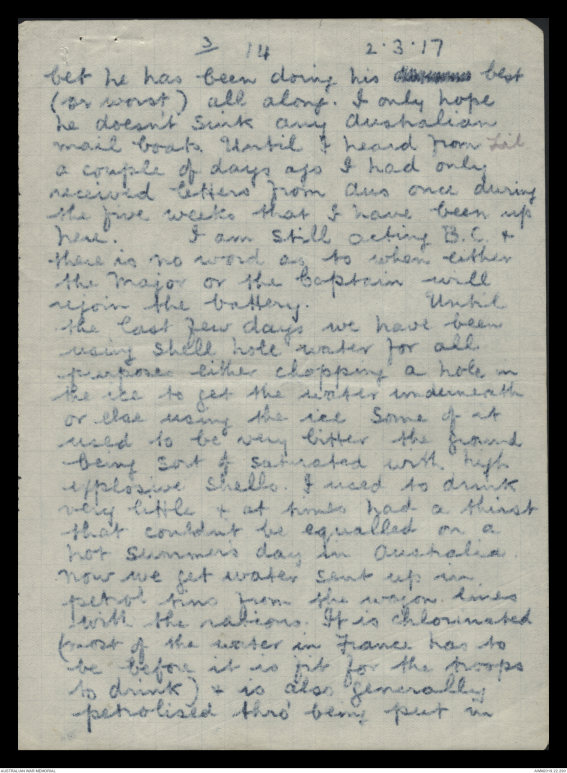 3 14 2.3.17
bet he has been doing his best
(or worst) all along. I only hope
he doesn't sink any Australian
mail boats. Until I heard from Lil
a couple of days ago I had only
received letters from Aus once during
the five weeks that I have been up
here. I am still acting B.C. &
there is no word as to when either
the Major or the Captain will
rejoin the battery. Until
the last few days we have been
using shell hole water for all
purposes either chopping a hole in
the ice to get the water underneath
or else using the ice some of it
used to be very bitter the ground
being sort of saturated with high
explosive shells. I used to drink
very little & at times had a thirst
that couldnt be equalled on a
hot summers day in Australia.
Now we get water sent up in
petrol tins from the wagon lines
with the rations. It is chlorinated
(most of the water in France has to
be before it is fit for the troops
to drink) & is also generally
petrolised thro' being put in
AUSTRALIAN WAR MEMORIAL